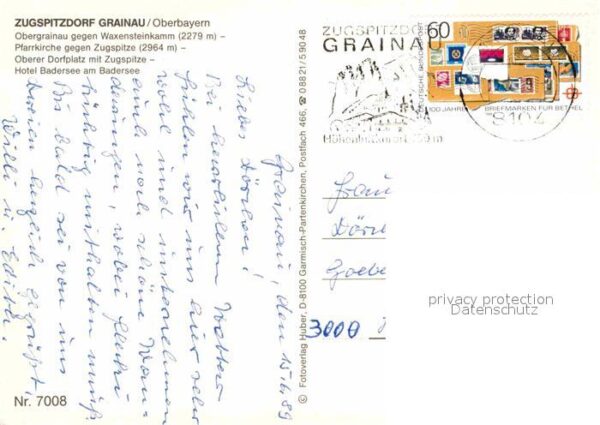 ZUGSPITZDORF GRAINAU/Oberbayern
Obergrainau gegen Waxensteinkamm (2279 m) –
Pfarrkirche gegen Zugspitze (2964 m) –
Oberer Dorfplatz mit Zugspitze –
Hotel Badersee am Badersee
Grainau, den 15.6.89
Liebes Dörchen!
Bei herrlichem Wetter
fühlen wir uns hier sehr
wohl und unternehmen
auch noch schöne Wan-
derungen, wobei
tüchtig mithalten muß.
Bis bald sei von uns
herzlich gegrüßt,
Willi u. Edith.
Nr. 7008
© Fotoverlag Huber, D-8100 Garmisch-Partenkirchen, Postfach 466, ☎ 08821/59048
ZUGSPITZDORF
GRAINAU
Höhenluftkurort 750 m
8104
60
DEUTSCHE BUNDESPOST
100 JAHRE BRIEFMARKEN FÜR BETHEL
Frau
3000
privacy protection
Datenschutz